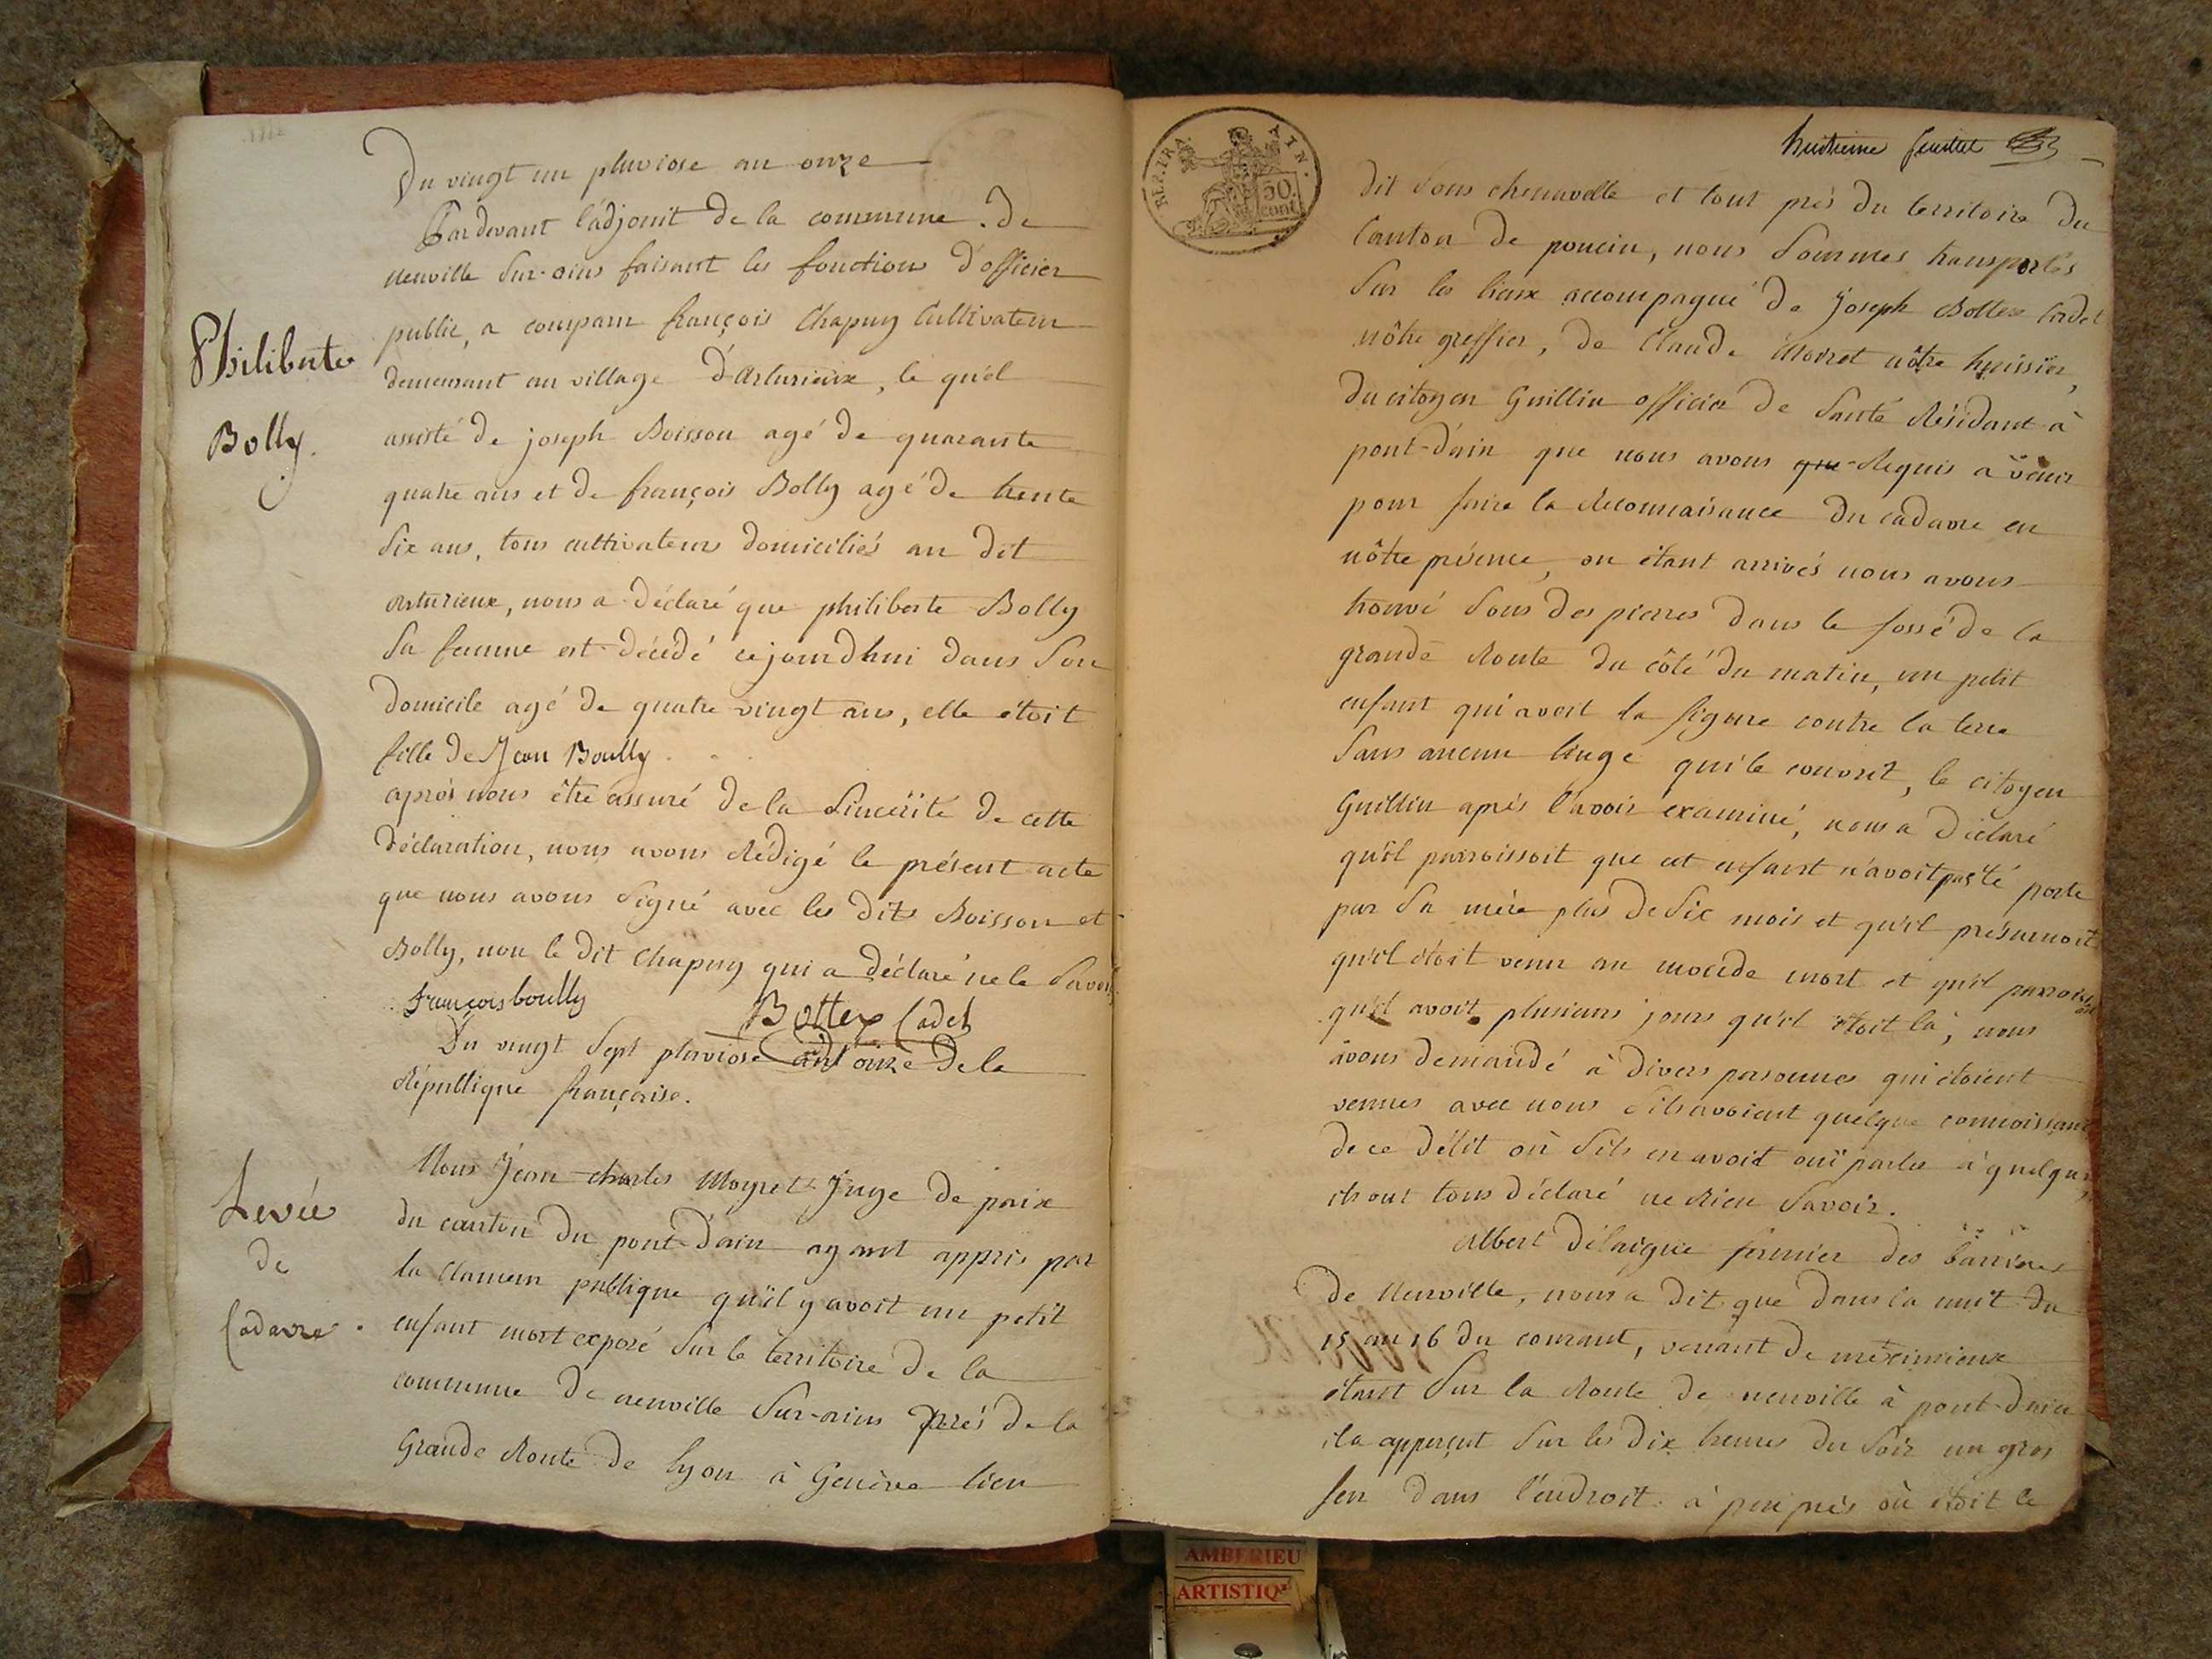 Du vingt un pluviose an onze
Pardevant l'adjoint de la commune de
neuville sur-ains faisant les fonctions d'officier
public, a comparu françois Chapuy Cultivateur
demeurant au village d'Arturieux, le quel
assisté de joseph Boisson agé de quarante
quatre ans et de françois Bolly agé de trente
six ans, tous cultivateurs domiciliés au dit
arturieux, nous a déclaré que philiberte Bolly
sa femme est décédé cejourdhui dans son
domicile agé de quatre vingt ans, elle étoit
fille de Jean Boully
après nous être assuré de la sincérité de cette
déclaration, nous avons rédigé le présent acte
que nous avons signé avec les dits Boisson et
Bolly, non le dit Chapuy qui a déclaré ne le savoir
françois boully Bottex Cadet
Philiberte
Bolly.
Du vingt sept pluviose an onze de la
République française.
Levée
de
Cadavre.
Nous Jean charles Moyret Juge de paix
du canton du pont-d'ain ayant appris par
la clameur publique qu'il y avoit un petit
enfant mort exposé sur le territoire de la
commune de neuville sur-ains près de la
Grande Route de lyon à Genève lieu
huitieme feuillet
REP. FRA. AIN.
50.
cent
dit sous chenavelle et tout près du territoire du
Canton de poncin, nous sommes transportés
sur les lieux accompagné de joseph Bottex Cadet
nôtre greffier, de Claude Moiret nôtre huissier,
du citoyen Guillin officier de santé Résidant à
pont-d'ain que nous avons que Requis à venir
pour faire la Reconnaisance du cadavre en
nôtre présence, en étant arrivés nous avons
trouvé sous des pierres dans le fossé de la
grande Route du côté du matin, un petit
enfant qui avoit la figure contre la terre
sans aucun linge qui le couvrit, le citoyen
Guillin après l'avoir examiné, nous a déclaré
qu'il parroissoit que cet enfant n'avoit pas été porté
par sa mère plus de six mois et qu'il présumoit
qu'il étoit venu au monde mort et qu'il parroissoit
qu'il avoit plusieurs jours qu'il étoit là, nous
avons demandé à divers personnes qui étoient
venues avec nous s'ils avoient quelque connoissance
de ce délit où s'ils en avoit ouï parler à quelqu'un,
ils ont tous déclaré ne Rien savoir.
Albert délaigue fermier des barrières
de Neuville, nous a dit que dans la nuit du
15 au 16 du courant, venant de méximieux
étant sur la Route de neuville à pont-d'ain
il a apperçut sur les dix heures du soir un gros
feu dans l'endroit à peu près où étoit le
AMBERIEU
ARTISTIQ